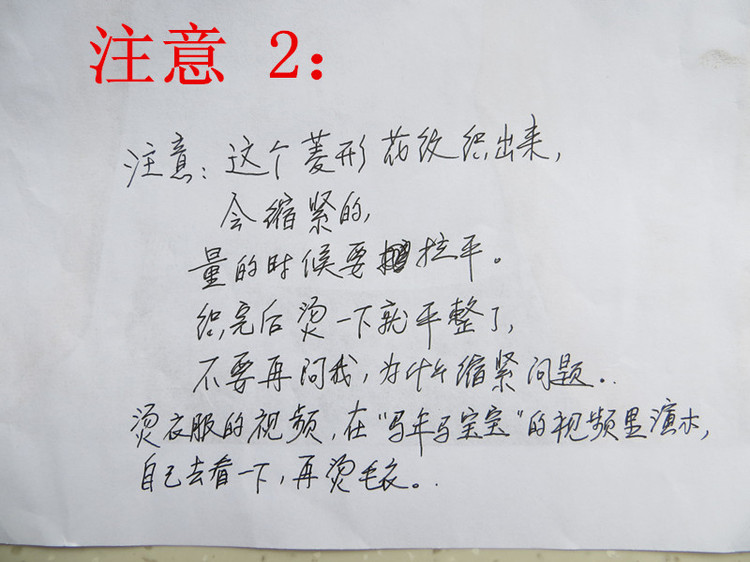 注意 2：
注意：这个菱形花纹织出来，
会缩紧的，
量的时候要拉平。
织完后烫一下就平整了，
不要再问我，为什么缩紧问题..
烫衣服的视频，在“马年马宝宝”的视频里演示，
自己去看一下，再烫毛衣。.